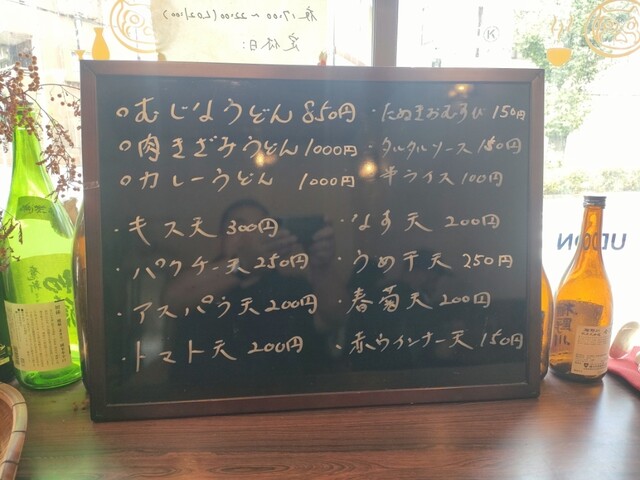 夜17:00~22:00(L.O21:00)
定休日:
○むじなうどん 850円 ・たぬきおむすび 150円
○肉きざみうどん 1000円 ・タルタルソース 150円
○カレーうどん 1000円 ・半ライス 100円
・キス天 300円 ・なす天 200円
・パクチー天 250円 ・うめ干天 250円
・アスパラ天 200円 ・春菊天 200円
・トマト天 200円 ・赤ウインナー天 150円
UDON